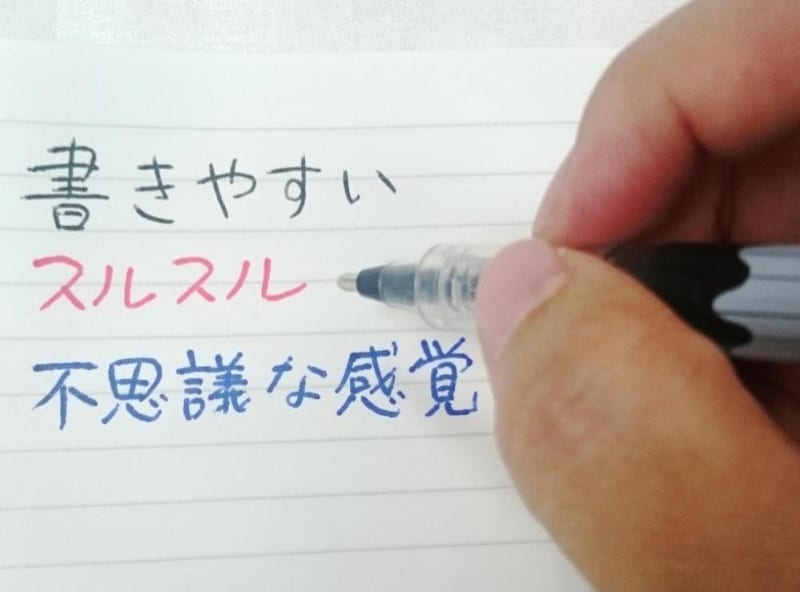 書きやすい
スルスル
不思議な感覚